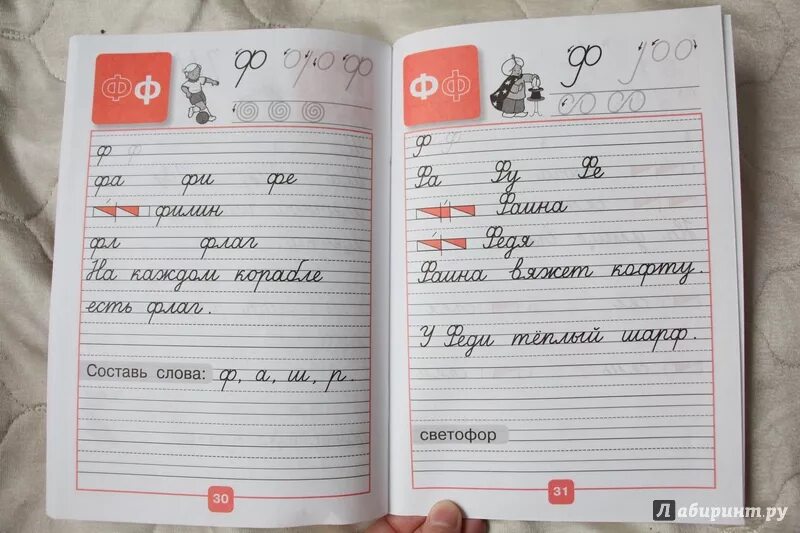 Ф ф
ф
ф ф
фа фи фе
филин
фл флаг
На каждом корабле
есть флаг.
Составь слова: ф, а, ш, р.
30
Ф ф
Ф
Ф ф
Фа Фу Фе
Фаина
Федя
Фаина вяжет кофту.
У Феди тёплый шарф.
светофор
31
Лабиринт.ру